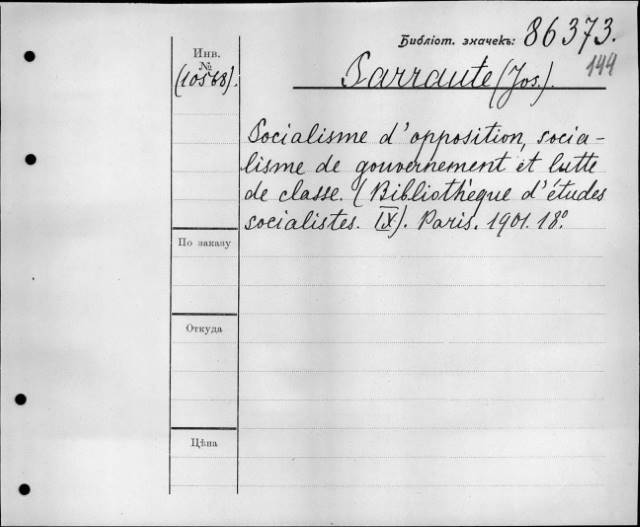 Библіот. значекъ: 86373.
144
Инв.
№
(10568).
Sarraute (Jos.).
Socialisme d'opposition, socia-
lisme de gouvernement et lutte
de classe. (Bibliothèque d'études
socialistes. IX). Paris. 1901. 18º.
По заказу
Откуда
Цѣна